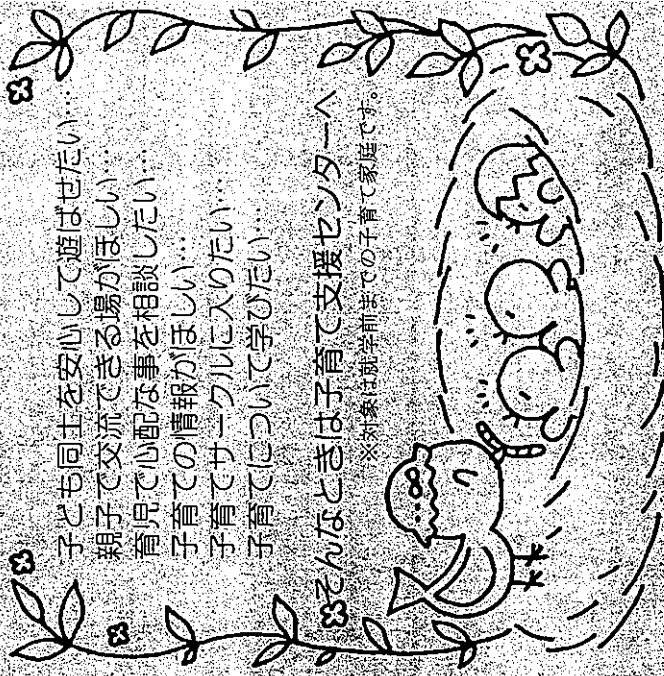 子ども同士を安心して遊ばせたい…
親子で交流できる場がほしい…
育児で心配な事を相談したい…
子育ての情報がほしい…
子育てサークルに入りたい…
子育てについて学びたい…
そんなときは子育て支援センターへ
※対象は就学前までの子育て家庭です。